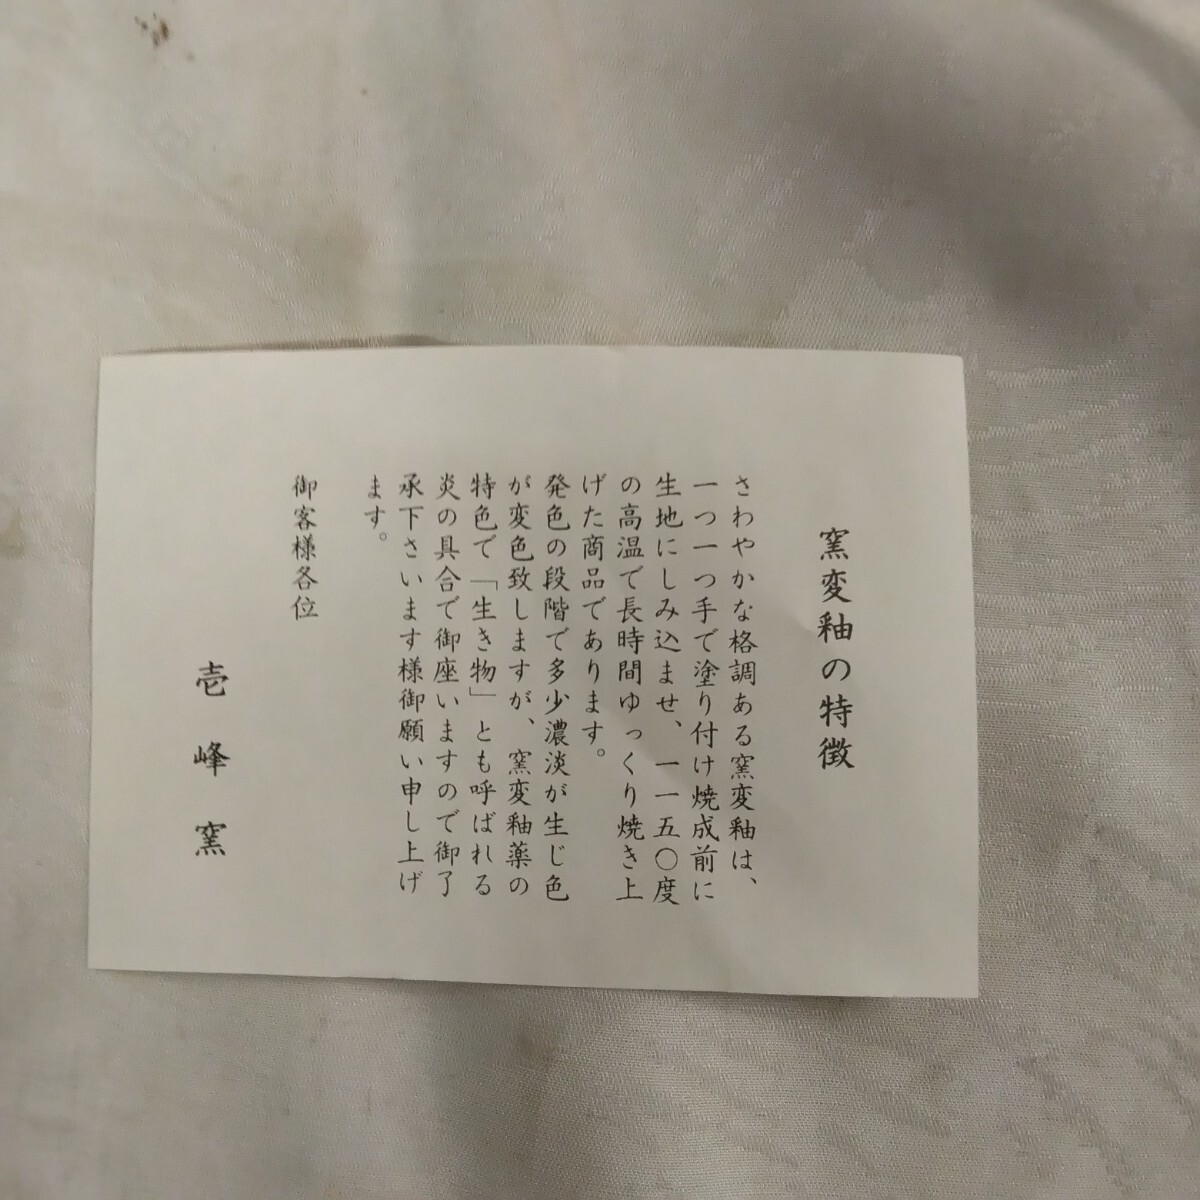 窯変釉の特徴
さわやかな格調ある窯変釉は、
一つ一つ手で塗り付け焼成前に
生地にしみ込ませ、一一五〇度
の高温で長時間ゆっくり焼き上
げた商品であります。
発色の段階で多少濃淡が生じ色
が変色致しますが、窯変釉薬の
特色で「生き物」とも呼ばれる
炎の具合で御座いますので御了
承下さいます様御願い申し上げ
ます。
御客様各位
壱峰窯